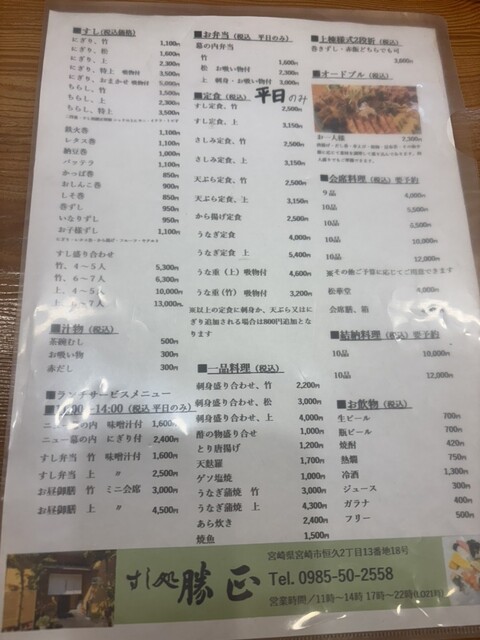 ■すし(税込価格)
にぎり、竹 1,100円
にぎり、松 1,600円
にぎり、上 2,300円
にぎり、特上 吸物付 3,500円
にぎり、おまかせ 吸物付 5,000円
ちらし、竹 1,500円
ちらし、上 2,300円
ちらし、特上 3,500円
鉄火巻 1,100円
レタス巻 1,100円
納豆巻 1,000円
バッテラ 1,100円
かっぱ巻 850円
おしんこ巻 900円
しそ巻 850円
巻ずし 950円
いなりずし 950円
お子様ずし 1,100円
すし盛り合わせ
竹、4~5人 5,300円
竹、6~7人 7,300円
上、4~5人 10,000円
上、6~7人 13,000円
■汁物(税込)
茶碗むし 500円
お吸い物 300円
赤だし 300円
■ランチサービスメニュー
-14:00(税込 平日のみ)
ニュー幕の内 味噌汁付 1,600円
ニュー幕の内 にぎり付 2,400円
すし弁当 竹 味噌汁付 1,600円
すし弁当 上 〃 2,500円
お昼御膳 竹 ミニ会席 3,000円
お昼御膳 上 〃 4,500円
■お弁当(税込 平日のみ)
幕の内弁当
竹 1,600円
松 お吸い物付 2,300円
上 刺身・お吸い物付 3,000円
■定食(税込) 平日のみ
すし定食、竹 2,500円
すし定食、上 3,150円
さしみ定食、竹 2,500円
さしみ定食、上 3,150円
天ぷら定食、竹 2,500円
天ぷら定食、上 3,150円
から揚げ定食 2,500円
うなぎ定食 4,000円
うなぎ定食 上 5,400円
うな重(上)吸物付 4,600円
うな重(竹)吸物付 3,200円
※以上の定食に刺身か、天ぷら又はに
ぎり追加される場合は800円追加とな
ります
■一品料理(税込)
刺身盛り合わせ、竹 2,200円
刺身盛り合わせ、松 3,000円
刺身盛り合わせ、上 4,000円
酢の物盛り合せ 1,700円
とり唐揚げ 1,200円
天麩羅 1,700円
ゲソ塩焼 1,000円
うなぎ蒲焼 竹 3,000円
うなぎ蒲焼 上 4,300円
あら炊き 2,400円
焼魚 1,500円
■上棟様式2段折(税込)
巻きずし・赤飯どちらでも可
3,600円
■オードブル(税込)
お一人様 2,300円
■会席料理(税込)要予約
9品 4,000円
10品 5,500円
10品 6,500円
10品 10,000円
10品 12,000円
※その他ご予算に応じてご用意できます
松華堂 4,000円
会席膳、箱
■結納料理(税込)要予約
10品 10,000円
12,000円
■お飲物(税込)
生ビール 700円
瓶ビール 700円
焼酎 420円
熱燗 750円
冷酒 1,300円
ジュース 300円
ガラナ 400円
フリー 500円
宮崎県宮崎市恒久2丁目13番地18号
すし処 勝正 Tel. 0985-50-2558
営業時間/11時~14時 17時~22時(LO21時)